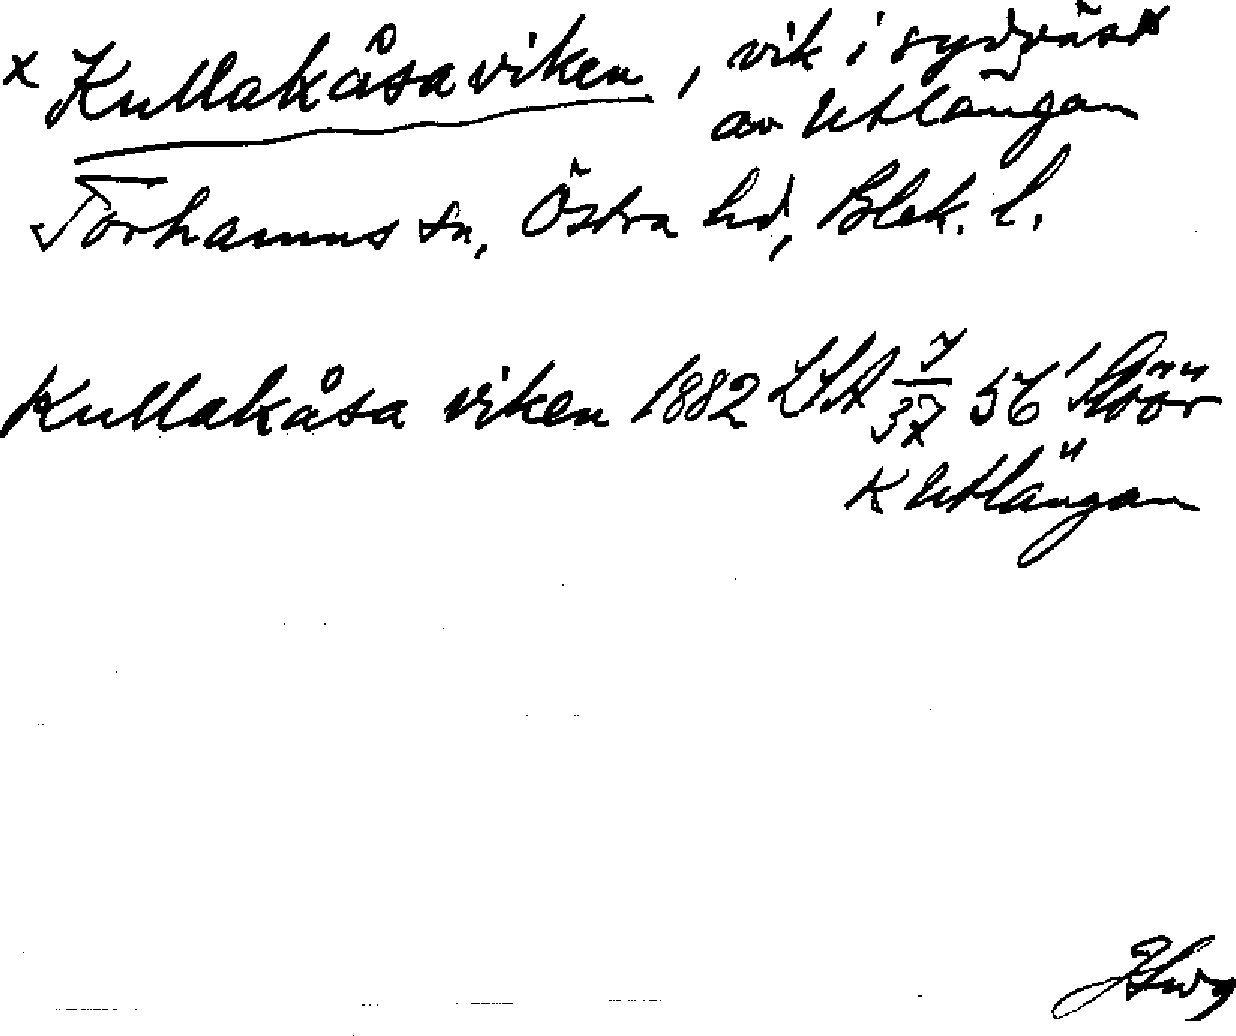 x Kullakåsaviken, vik i sydväst
av Utlängan
Torhamns sn, Östra hd, Blek. l.
Kullakåsa viken 1882 LSA 7/37 56
K Utlängan